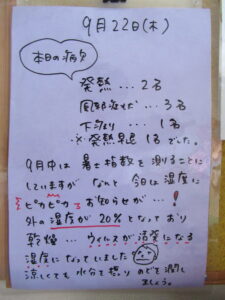 9月22日(木)
本日の病欠
発熱…2名
胃腸症状…3名
下痢…1名
※発熱早退 1名でした。
9月中は暑さ指数を測ることに
していますが なんと 今日は湿度に
ピカピカとお知らせが…!
外の湿度が20%となっており
乾燥…ウイルスが活発になる
湿度になっていました
涼しくても水分を摂り のどを潤し
ましょう。